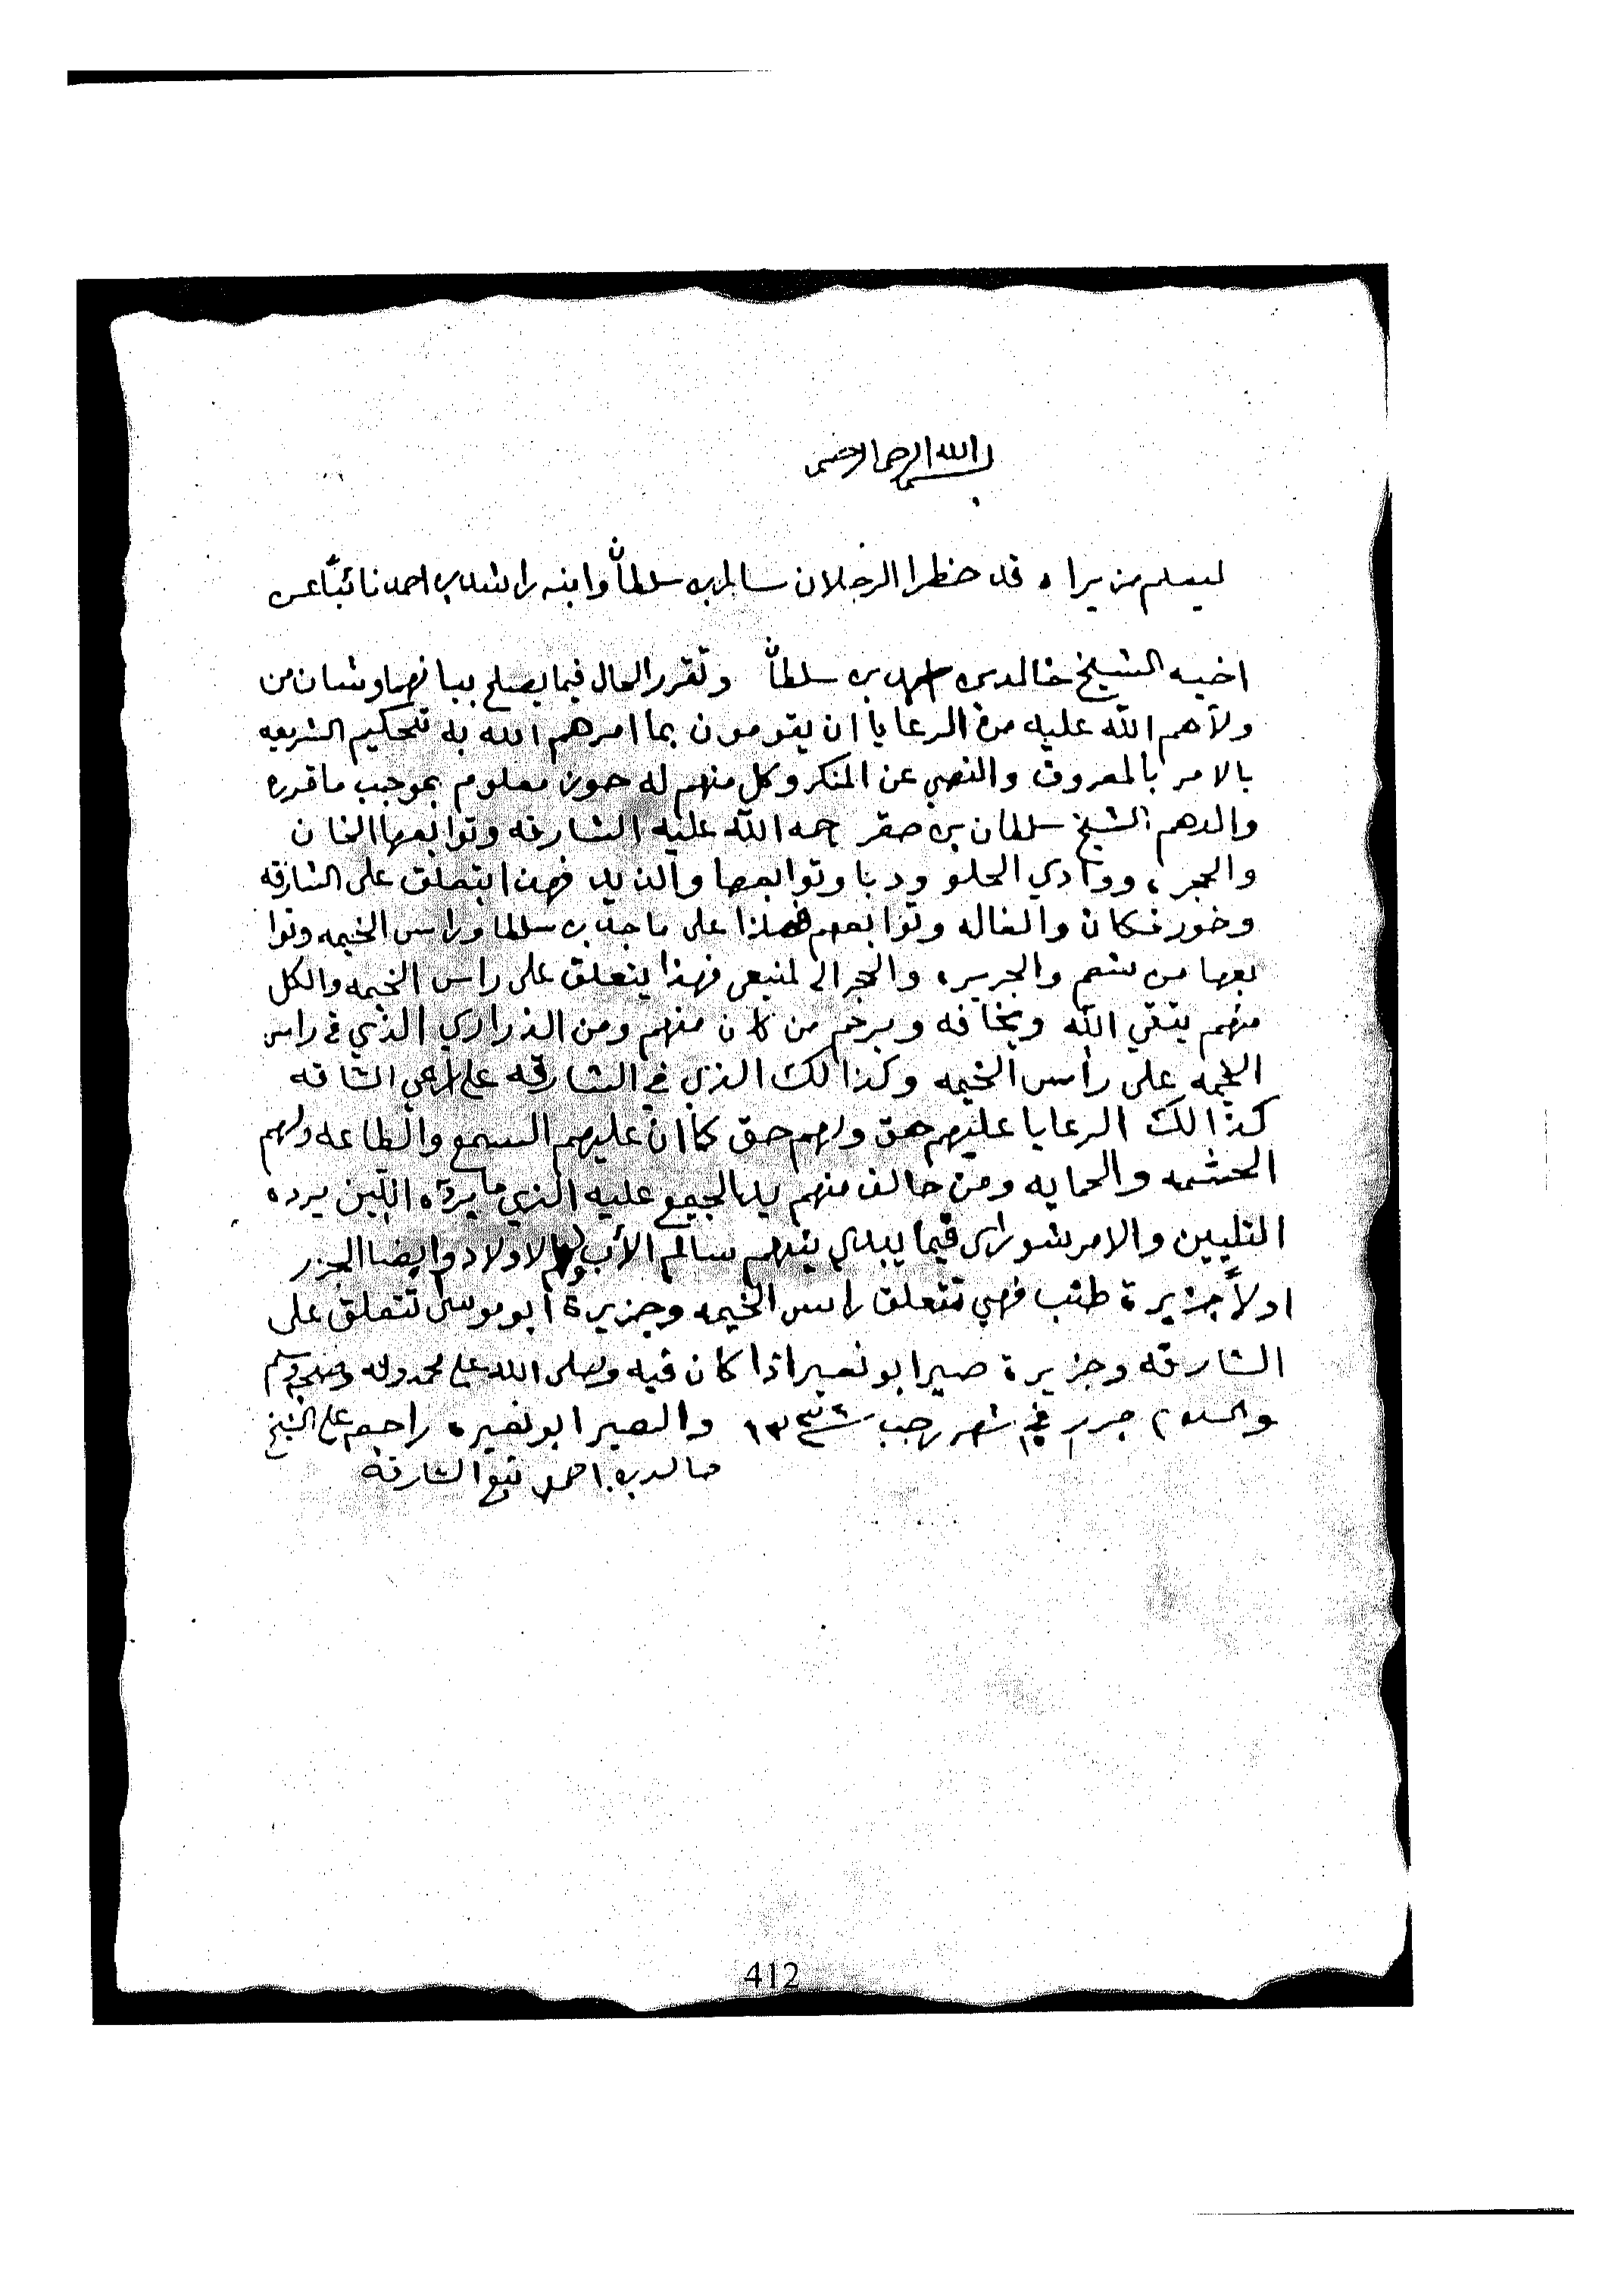 بسم الله الرحمن الرحيم
ليعلم من يراه قد حظرا الرجلان سالم بن سلطان وابنه راشد بن احمد نائبًا عن
اخيه الشيخ خالد بن احمد بن سلطان وتقرر الحال فيما يصلح بيبانهما وشان من
ولاهم الله عليه من الرعايا ان يقومون بما امرهم الله به تحكيم الشريعه
بالامر بالمعروف والنهي عن المنكر وكل منهم له حوز معلوم بموجب ما قرره
والدهم الشيخ سلطان بن صقر رحمه الله عليه الشارقه وتوابعها الخان
والحمريه ووادي الحلو ودبا وتوابعها والذيد فهذا يتعلق على الشارقه
وخورفكان والغاله وتوابعهم فهذا على ماجد بن سلطان وراس الخيمه وتوا
بعها من شعم والجزيره والحجر الى لمنيعي فهذا يتعلق على راس الخيمه والكل
منهم يتقي الله ويخافه ويرحم من كان منهم ومن الذراري الذي في راس
الخيمه على راس الخيمه وكذالك الذي في الشارقه على راعي الشارقه
كذالك الرعايا عليهم حق ولهم حق كما ان عليهم السمع والطاعه ولهم
الحشمه والحمايه ومن خالف منهم يد الجميع عليه الذي ما يرده اللين يرده
التليين والامر شورى فيما يبدي بينهم سالم الأب لهم وهم الاولاد وايضا الجزر
اولاً جزيرة طنب فهي تتعلق راس الخيمه وجزيرة ابو موسى تتعلق على
الشارقه وجزيرة صير ابو نعير اذا كان فيه وصلى الله على محمد واله وصحبه وسلم
والسلام حرر في شهر رجب والصير ابو نعيره راجعه على الشيخ
خالد بن احمد تبع الشارقه
412